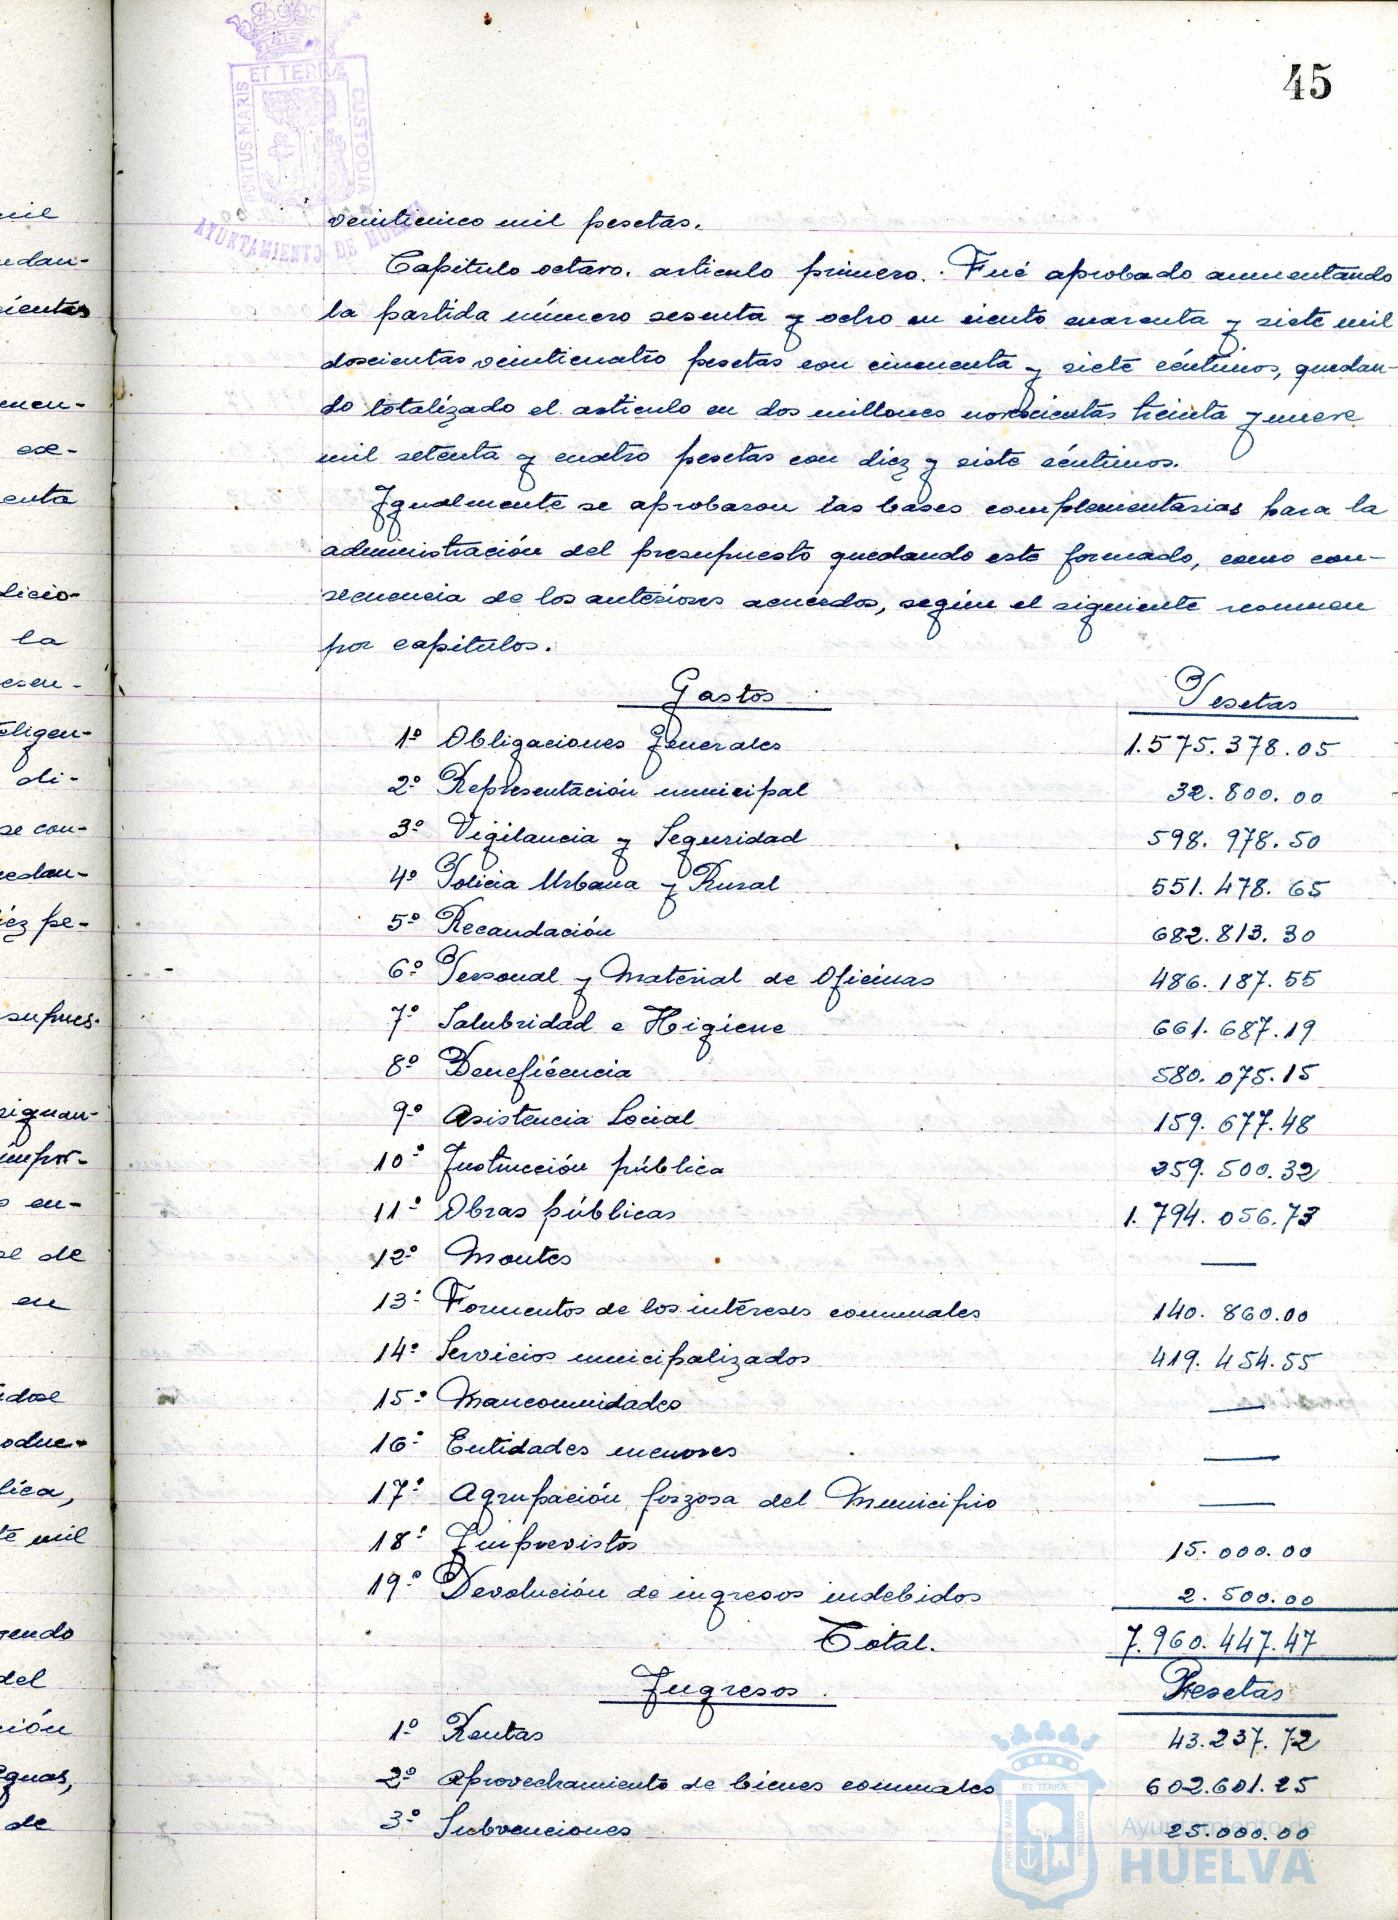 45
ET TERRÆ
PORTUS MARIS
CUSTODIA
AYUNTAMIENTO DE HUELVA
veinticinco mil pesetas.
Capitulo octavo. articulo primero.. Fué aprobado aumentando
la partida número sesenta y ocho en ciento cuarenta y siete mil
doscientas veinticuatro pesetas con cincuenta y siete céntimos, quedan-
do totalizado el articulo en dos millones novecientas treinta y nueve
mil setenta y cuatro pesetas con diez y siete céntimos.
Igualmente se aprobaron las bases complementarias para la
administración del presupuesto quedando este formado, como con-
secuencia de los anteriores acuerdos, según el siguiente resumen
por capitulos.
Gastos Pesetas
1º Obligaciones Generales 1.575.378.05
2º Representación municipal 32.800.00
3º Vigilancia y Seguridad 598.978.50
4º Policia Urbana y Rural 551.478.65
5º Recaudación 682.813.30
6º Personal y Material de Oficinas 486.187.55
7º Salubridad e Higiene 661.687.19
8º Beneficencia 580.075.15
9º Asistencia Social 159.677.48
10º Instrucción pública 259.500.32
11º Obras públicas 1.794.056.73
12º Montes —
13º Formentos de los intereses comunales 140.860.00
14º Servicios municipalizados 419.454.55
15º Mancomunidades —
16º Entidades menores —
17º Agrupación forzosa del Municipio —
18º Imprevistos 15.000.00
19º Devolución de ingresos indebidos 2.500.00
Total. 7.960.447.47
Ingresos. Pesetas
1º Rentas 43.237.72
2º Aprovechamiento de bienes comunales 602.601.25
3º Subvenciones 25.000.00
ET TERRÆ
PORTUS MARIS
CUSTODIA
Ayuntamiento de
HUELVA